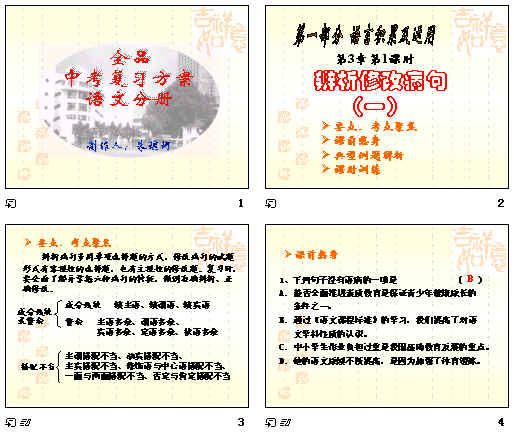 吉祥如意
全品
中考复习方案
语文分册
吉祥如意
第一部分 语言积累及运用
第3章 第1课时
辨析修改病句
(一)
➢ 要点、考点聚焦
➢ 课前热身
➢ 典型例题解析
➢ 课时训练
1
2
吉祥如意
➢ 要点、考点聚焦
辨析病句多用单项选择题的方式,修改病句的试题
形式有客观性的选择题,也有主观性的修改题。复习时,
成分残缺 缺主语、缺谓语、缺宾语
或赘余 赘余 主语多余、谓语多余、
宾语多余、定语多余、状语多余
主谓搭配不当、动宾搭配不当、
搭配不当 主宾搭配不当、修饰语与中心语搭配不当、
一面与两面搭配不当、否定与肯定搭配不当
吉祥如意
➢ 课前热身
1、下列句子没有语病的一项是 ( B )
A. 能否全面推进素质教育是保证青少年健康成长的
条件之一。
B. 通过《语文课程标准》的学习,我们提高了对语
文学科性质的认识。
C. 中小学生作业负担过重是我国基础教育发展的重点。
D. 他的语文成绩不断提高,是因为加强了体育锻炼。
3
4